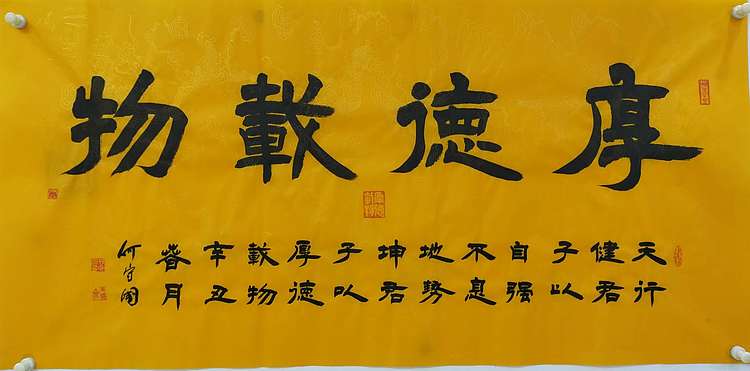 厚德載物
天行
健君
子以
自强
不息
地勢
坤君
子以
厚德
載物
辛丑
春月
何守國